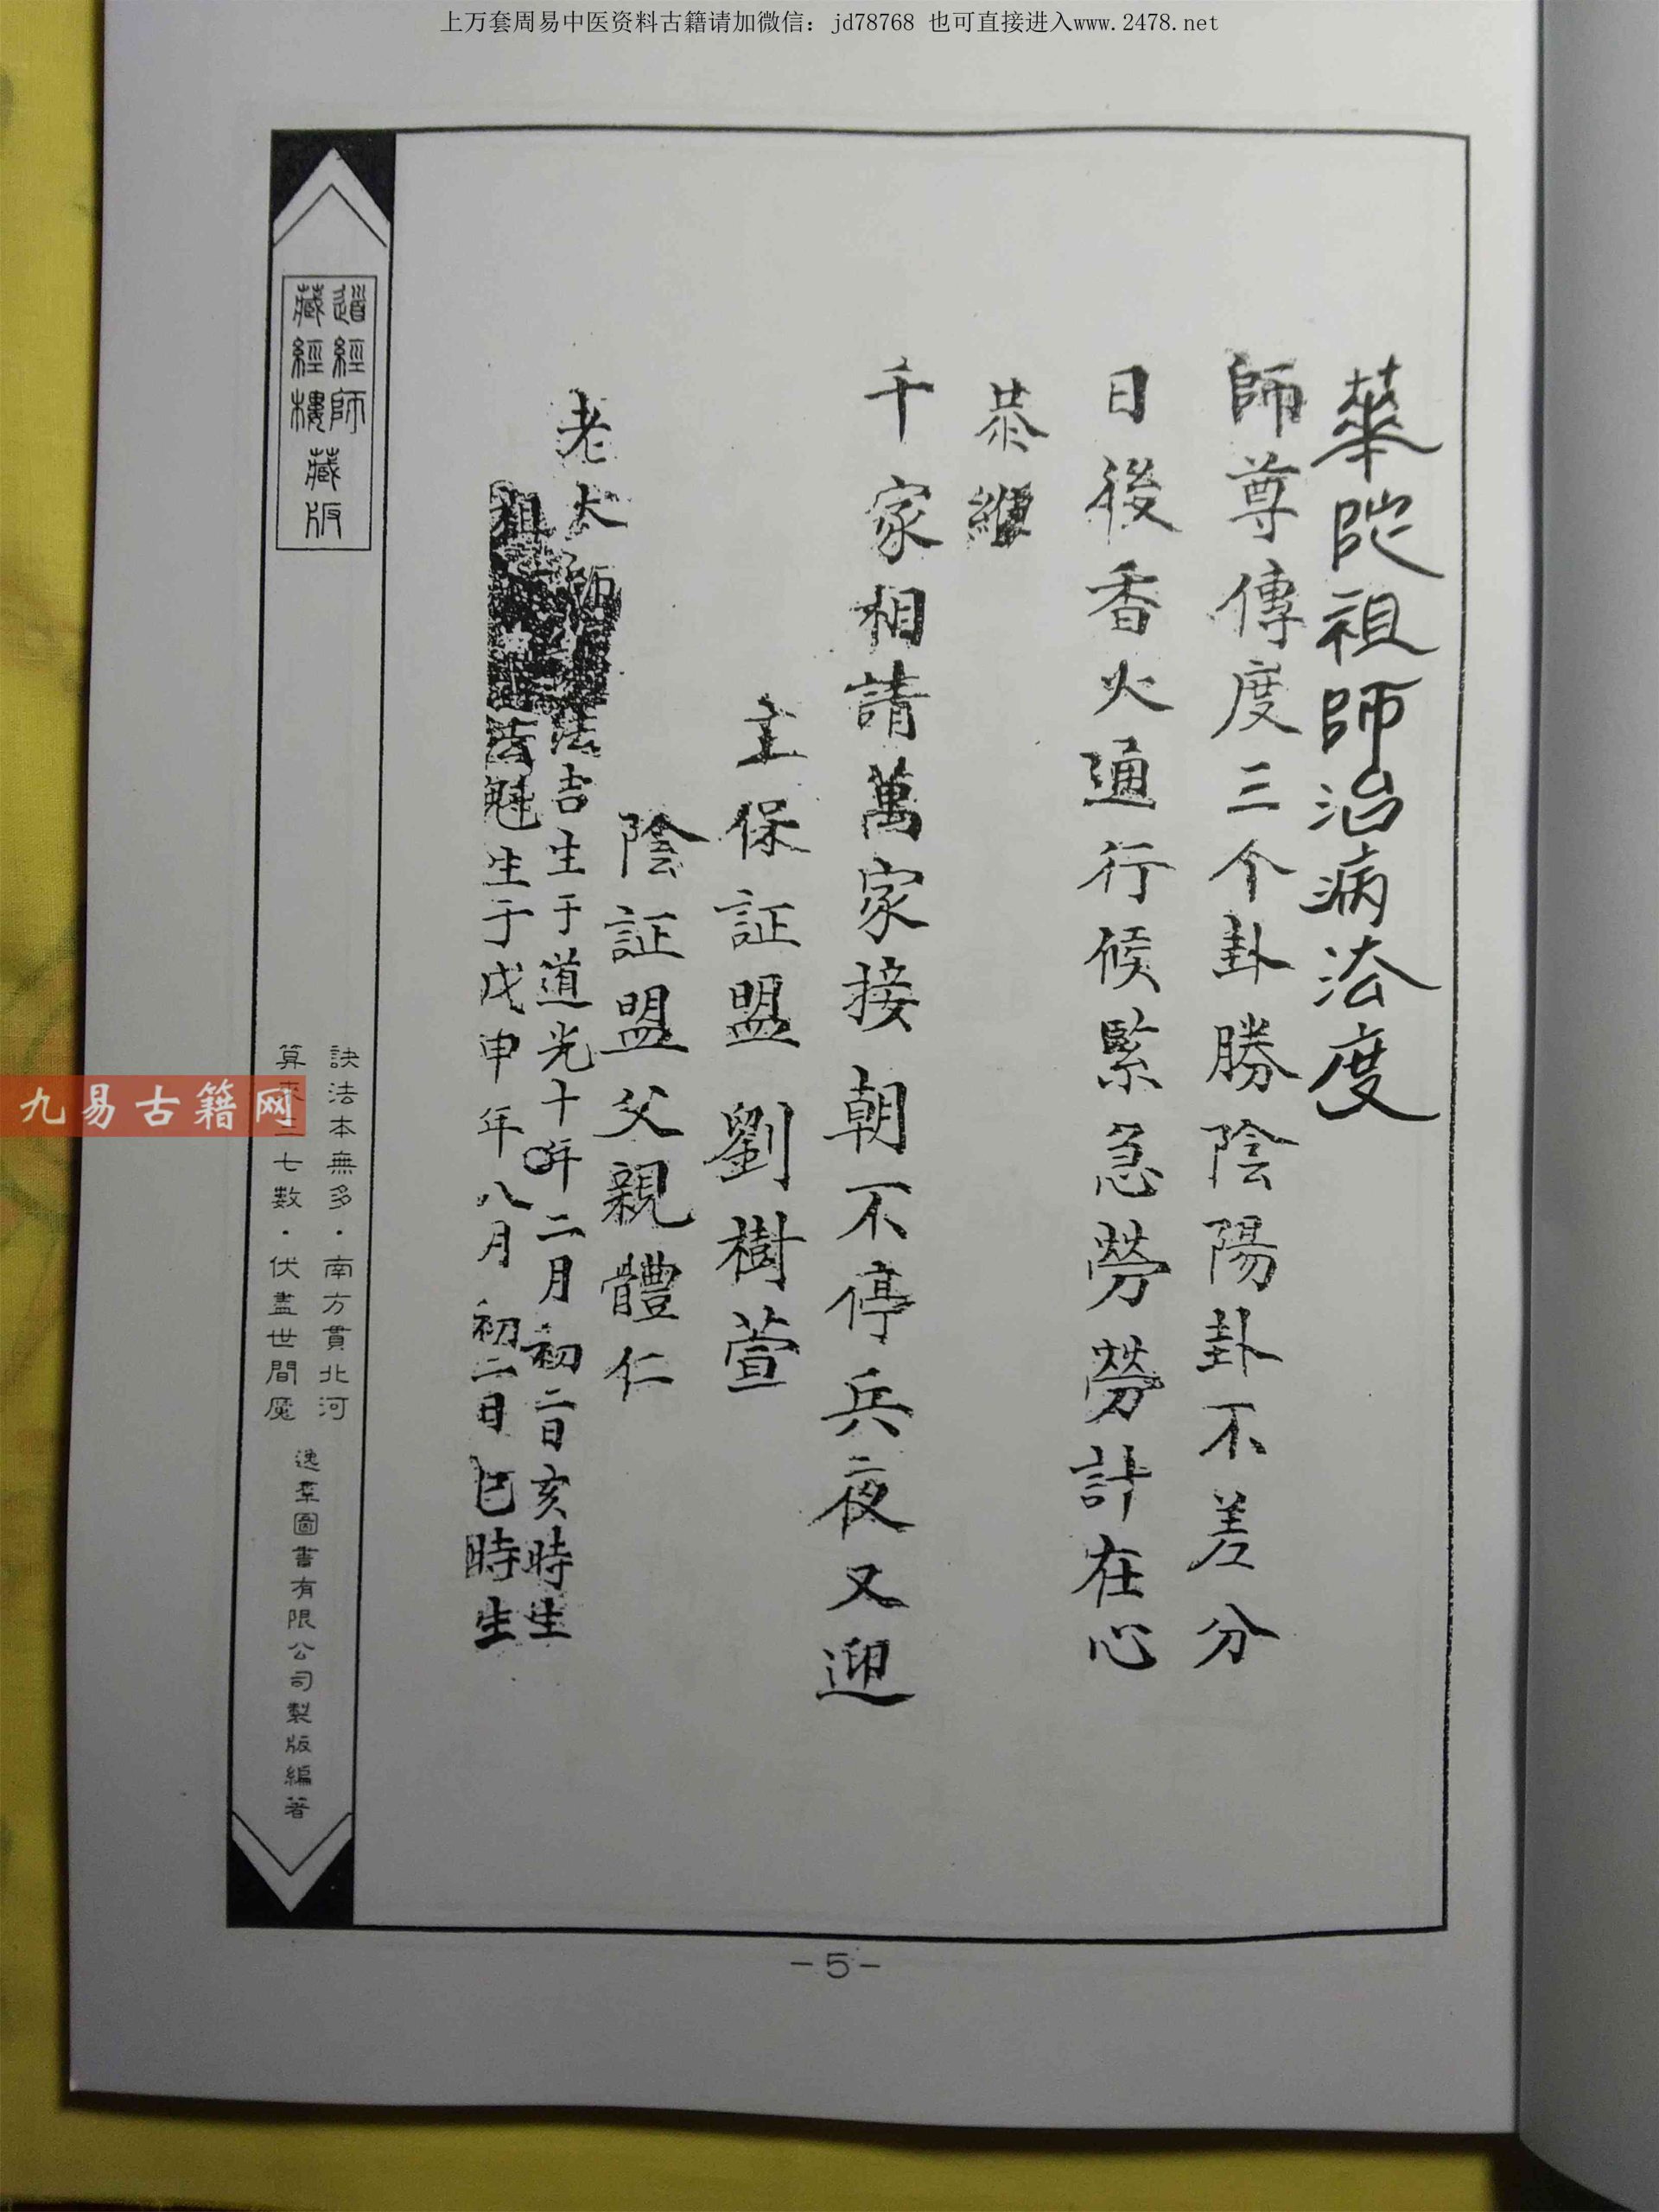 上万套周易中医资料古籍请加微信：jd78768 也可直接进入www.2478.net
華陀祖師治病法度
師尊傳度三个卦勝陰陽卦不差分
日後香火通行候緊急勞勞計在心
恭維
千家相請萬家接朝不停兵夜又迎
主保証盟劉樹萱
陰証盟父親體仁
老大師法吉生于道光十年二月初二日亥時生
祖法魁生于戊申年八月初二日巳時生
道經師
藏經樓
藏版
訣法本無多·南方貫北河
算來三七數·伏盡世間魔
逸羣圖書有限公司製版編著
九易古籍网
-5-